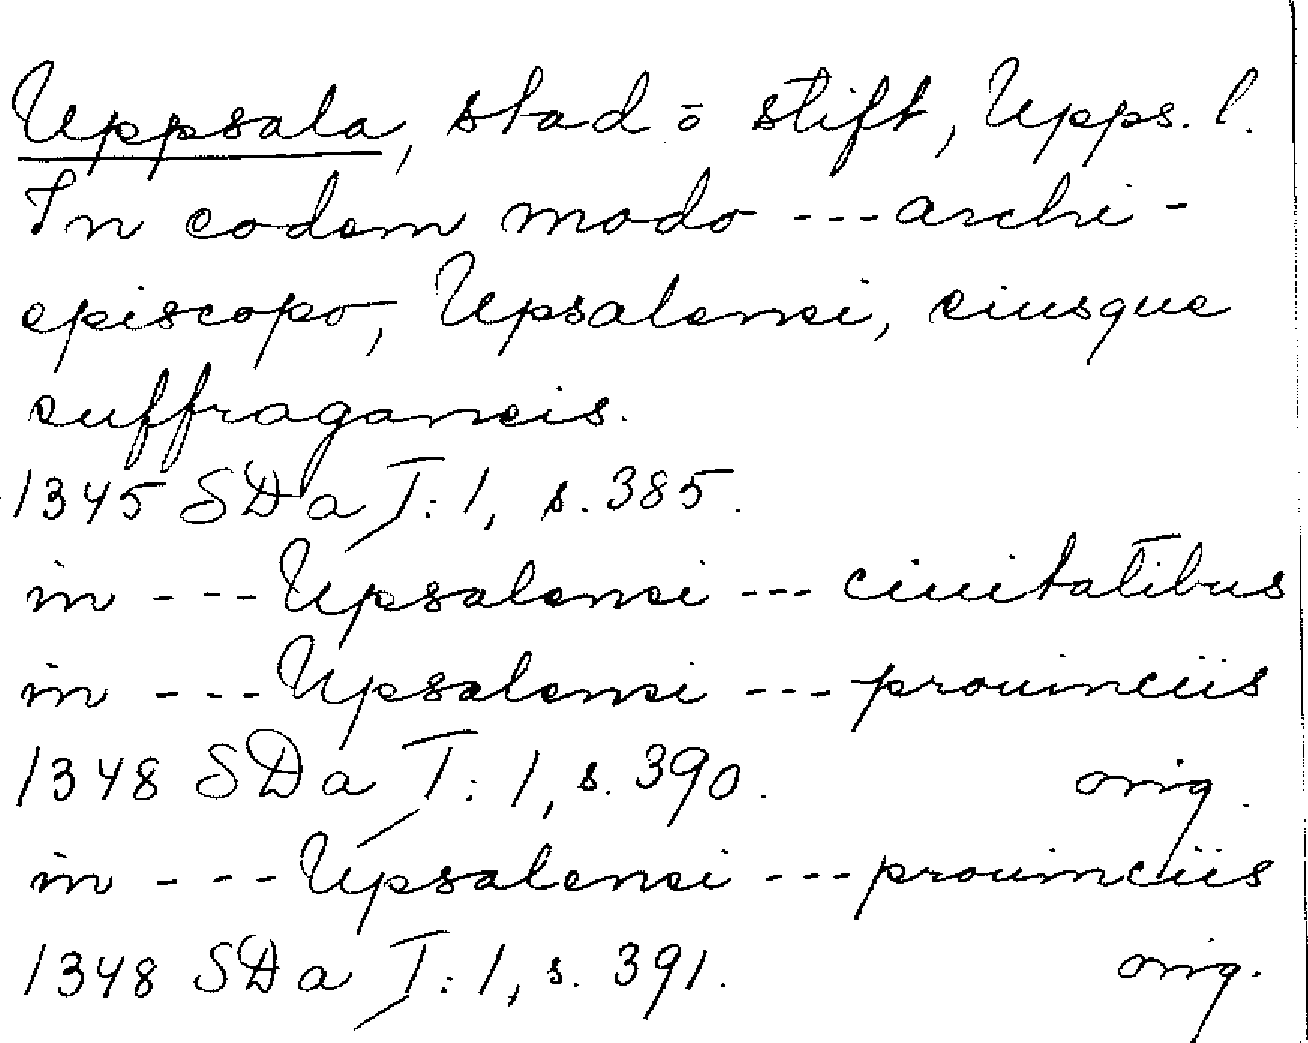 Uppsala, stad o stift, Upps. l.
In eodem modo --- archi-
episcopo, Upsalensi, eiusque
suffraganeis.
1345 SDa I:1, s. 385.
in --- Upsalensi --- ciuitatibus
in --- Upsalensi --- prouinciis
1348 SDa I:1, s. 390. orig.
in --- Upsalensi --- prouinciis
1348 SDa I:1, s. 391. orig.